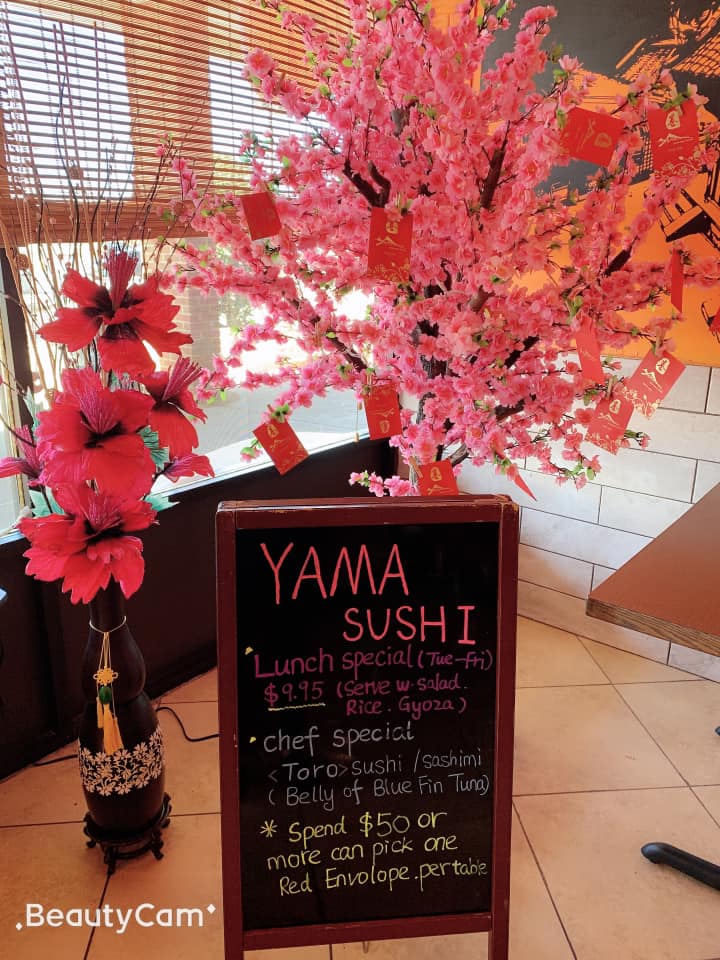 YAMA
SUSHI
Lunch special (Tue-Fri)
$9.95 (Serve w. salad.
Rice. Gyoza)
chef special
<Toro> sushi / sashimi
(Belly of Blue Fin Tuna)
* Spend $50 or
more can pick one
Red Envolope. per table
BeautyCam